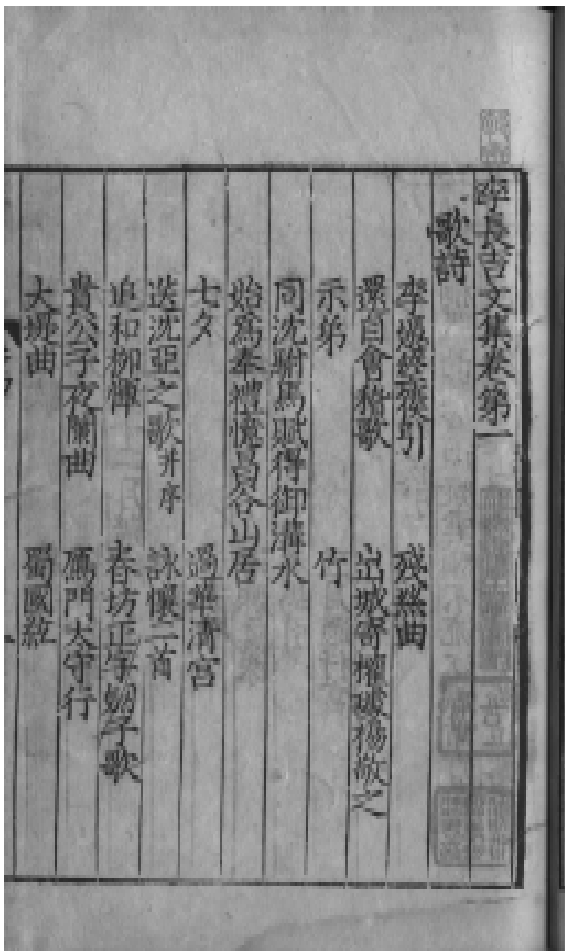 李長吉文集卷第一
歌詩
李憑箜篌引 殘絲曲
還自會稽歌 出城寄權璩楊敬之
示弟 竹
同沈駙馬賦得御溝水
始爲奉禮憶昌谷山居
七夕 過華清宮
送沈亞之歌并序 詠懷二首
追和柳惲 春坊正字劒子歌
貴公子夜闌曲 鴈門太守行
大堤曲 蜀國絃